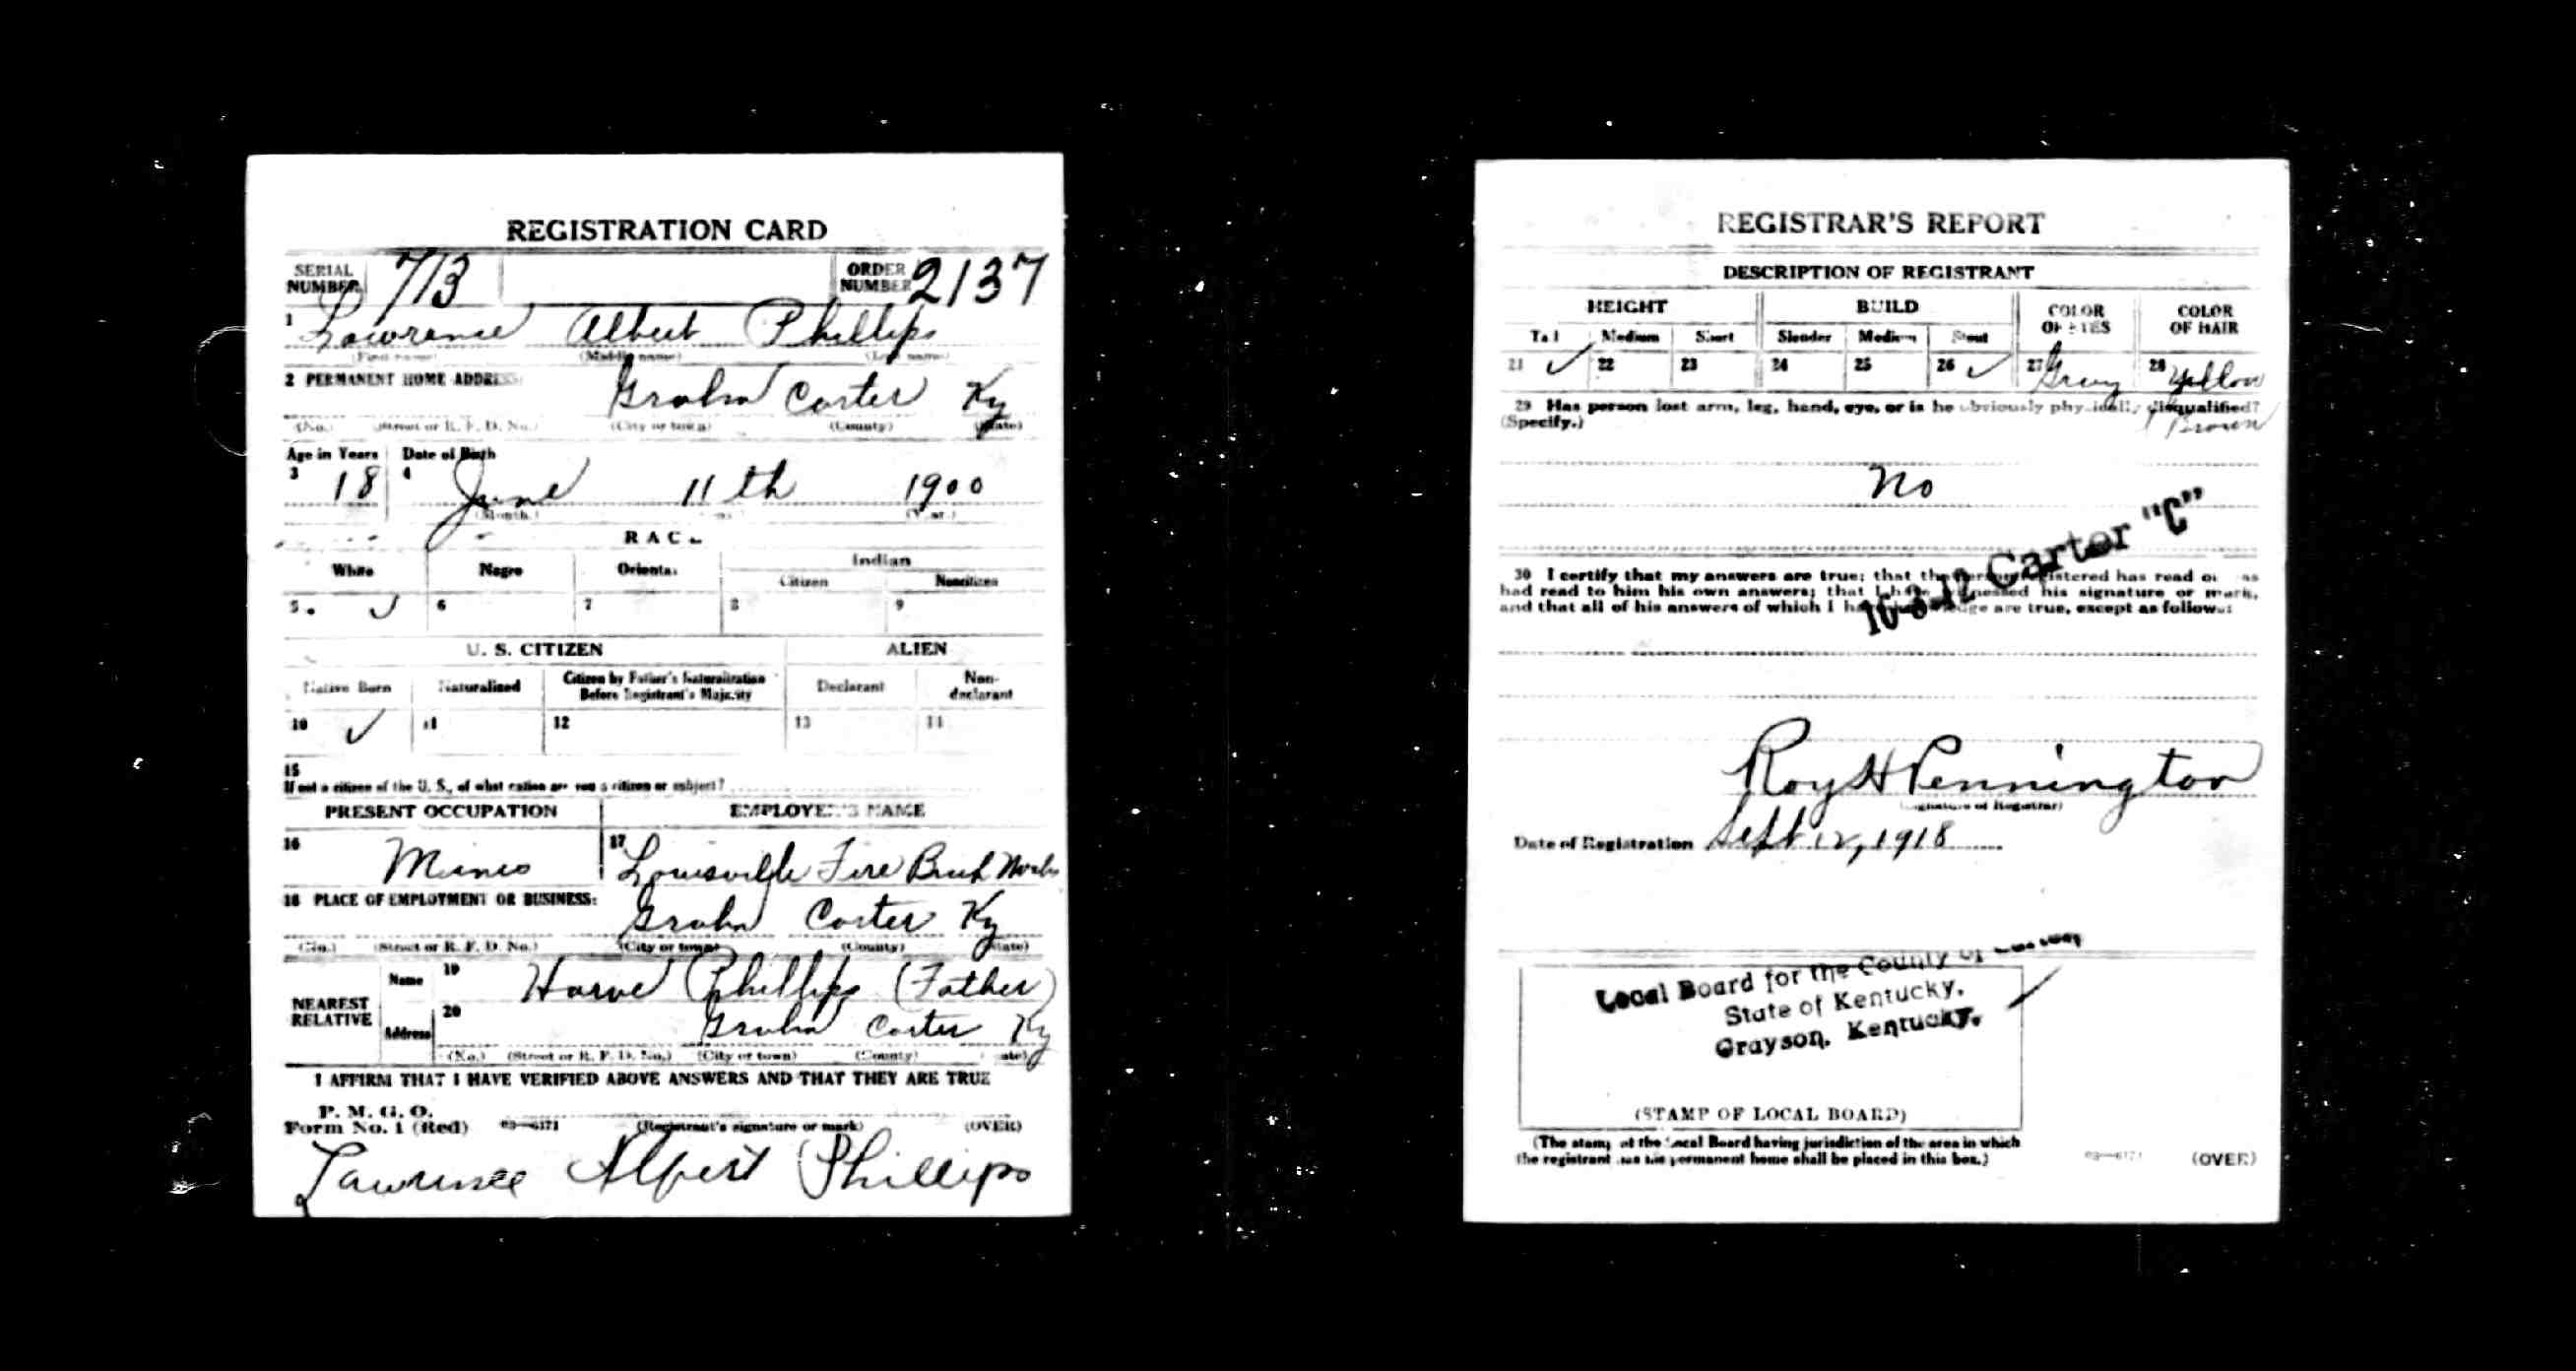 REGISTRATION CARD
SERIAL NUMBER 713 ORDER NUMBER 2137
1 Lawrence Albert Phillips
(First name) (Middle name) (Last name)
2 PERMANENT HOME ADDRESS: Grahn Carter Ky
(No.) (Street or R. F. D. No.) (City or town) (County) (State)
Age in Years Date of Birth
3 18 4 June 11th 1900
(Month.) (Year.)
RACE
White Negro Oriental Indian
Citizen Noncitizen
5 ✓ 6 7 8 9
U. S. CITIZEN ALIEN
Native Born Naturalized Citizen by Father's Naturalization Before Registrant's Majority Declarant Non-declarant
10 ✓ 11 12 13 14
15
If not a citizen of the U. S., of what nation are you a citizen or subject?
PRESENT OCCUPATION EMPLOYER'S NAME
16 17 Louisville Fire Brick Works
18 PLACE OF EMPLOYMENT OR BUSINESS: Grahn Carter Ky
(No.) (Street or R. F. D. No.) (City or town) (County) (State)
NEAREST RELATIVE
Name 19 Harve Phillips (Father)
Address 20 Grahn Carter Ky
(No.) (Street or R. F. D. No.) (City or town) (County) (State)
I AFFIRM THAT I HAVE VERIFIED ABOVE ANSWERS AND THAT THEY ARE TRUE
P. M. G. O.
Form No. 1 (Red) 03—6171 (Registrant's signature or mark) (OVER)
Lawrence Alpert Phillips
REGISTRAR'S REPORT
DESCRIPTION OF REGISTRANT
HEIGHT BUILD COLOR OF EYES COLOR OF HAIR
Tall Medium Short Slender Medium Stout
21 ✓ 22 23 24 25 26 ✓ 27 Gray 28 Yellow
29 Has person lost arm, leg, hand, eye, or is he obviously physically disqualified?
(Specify.) Brown
No
Carter "C"
30 I certify that my answers are true; that the person registered has read or has
had read to him his own answers; that I have witnessed his signature or mark,
and that all of his answers of which I have knowledge are true, except as follows:
Roy H Pennington
(Signature of Registrar)
Date of Registration Sept 12, 1918
Local Board for the County of Carter
State of Kentucky.
Grayson, Kentucky.
(STAMP OF LOCAL BOARD)
(The stamp of the Local Board having jurisdiction of the area in which
the registrant has his permanent home shall be placed in this box.)
03—6171 (OVER)